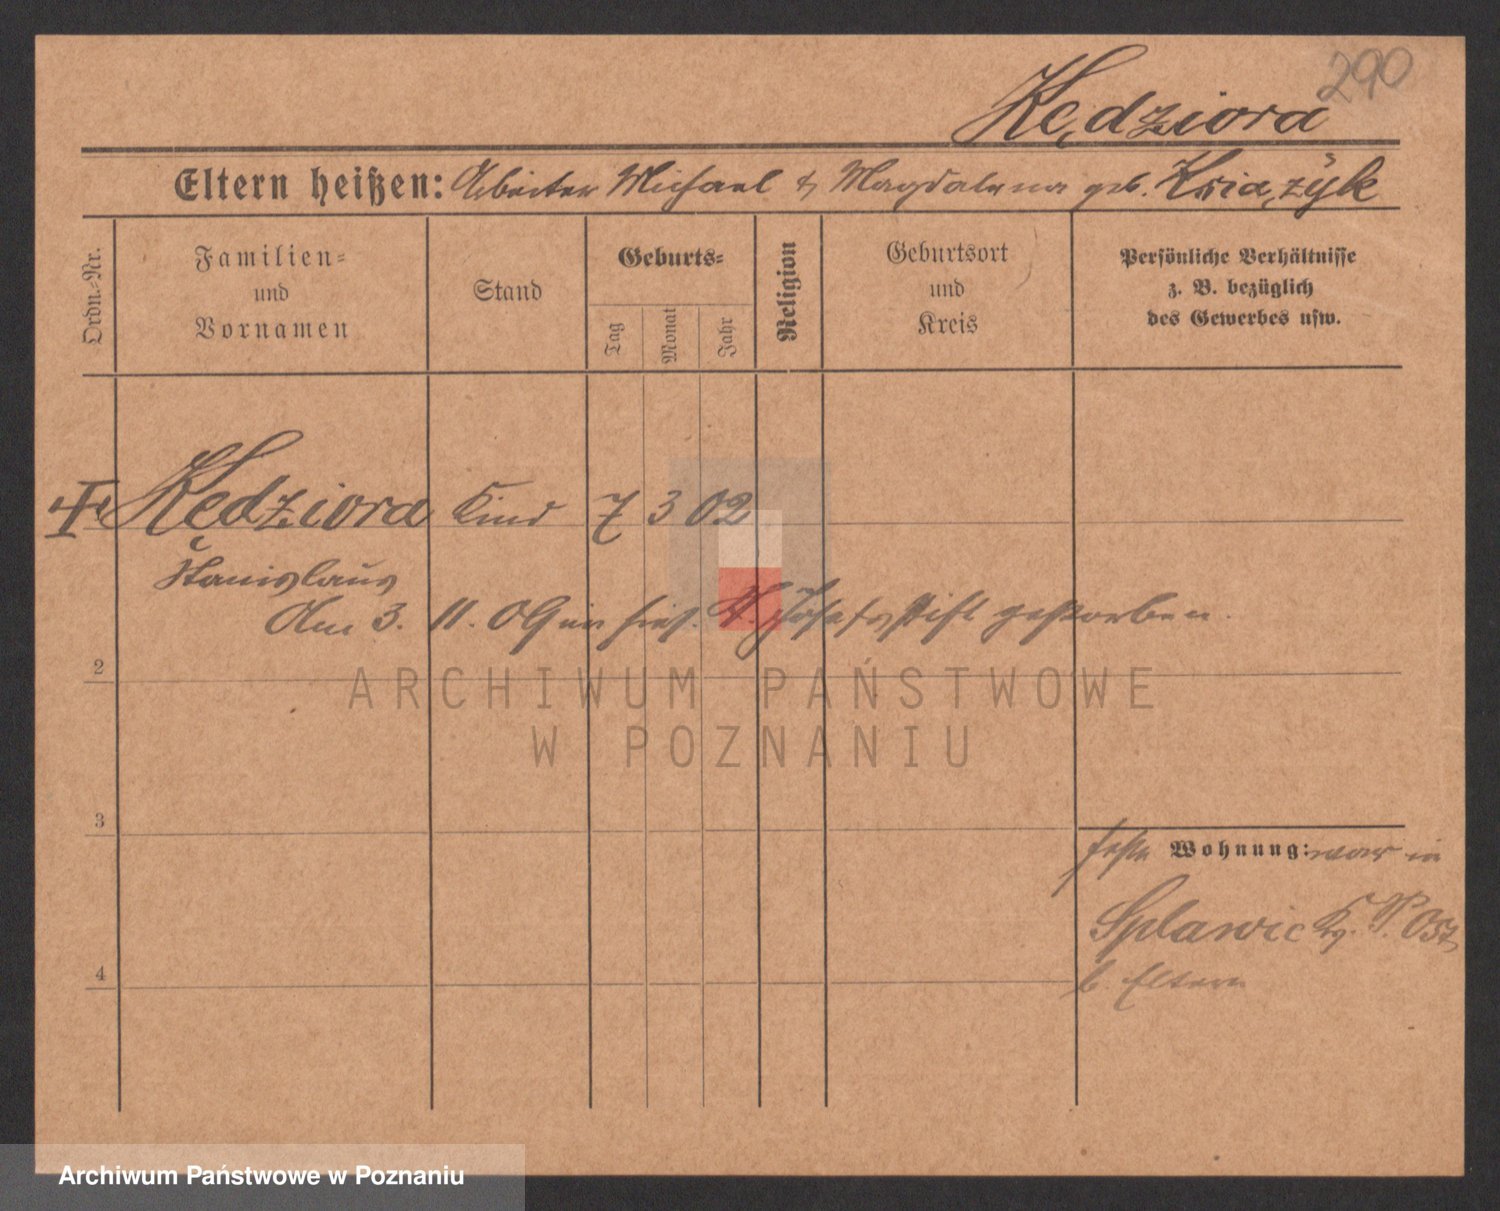 290
Kędziora
Eltern heißen: Arbeiter Michael & Magdalena geb. Książyk
Ordn.-Nr.
Familien-
und
Vornamen
Stand
Geburts-
Tag
Monat
Jahr
Religion
Geburtsort
und
Kreis
Persönliche Verhältnisse
z. B. bezüglich
des Gewerbes usw.
Kędziora Kind 7 3 02
Stanislaus
Am 3. 11. 09 im hies. St. Josefsstift gestorben.
2
3
4
feste Wohnung: war in
Splawie Kr. P. Ost
b. Eltern
ARCHIWUM PAŃSTWOWE
W POZNANIU
Archiwum Państwowe w Poznaniu